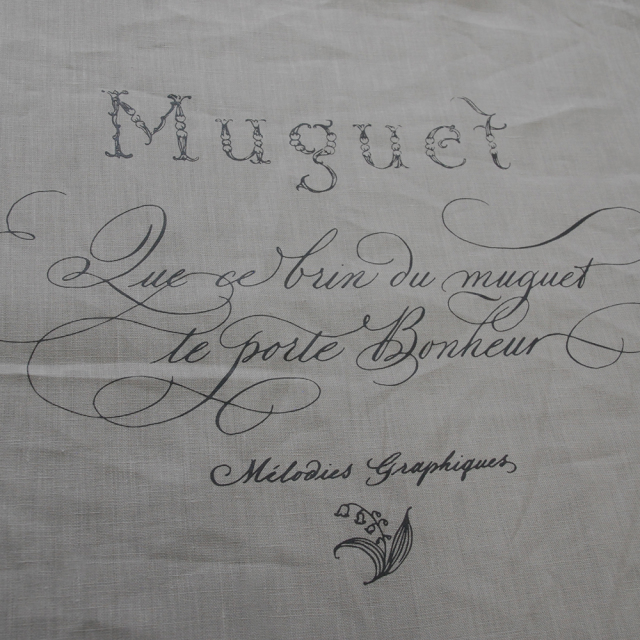 Muguet
Que ce brin du muguet
te porte Bonheur
Mélodies Graphiques